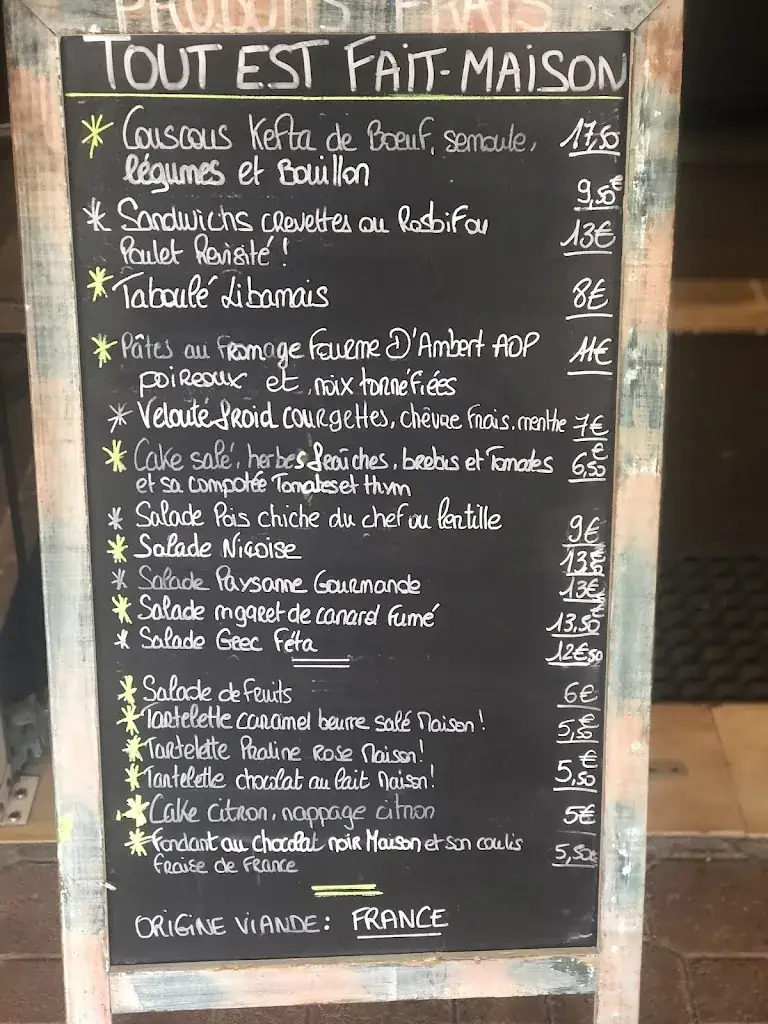 PRODUITS FRAIS
TOUT EST FAIT-MAISON
* Couscous Kefta de Boeuf, semoule, 17,50
légumes et Bouillon
9,50€
* Sandwichs crevettes ou RosbiF ou 13€
Poulet Revisité !
* Taboulé Libanais 8€
* Pâtes au Fromage Fourme D'Ambert AOP 11€
poireaux et noix torréfiées
* Velouté froid courgettes, chèvre frais, menthe 7€
* Cake salé, herbes fraîches, brebis et Tomates 6,50€
et sa compotée Tomates et thym
* Salade Pois chiche du chef ou lentille 9€
* Salade Niçoise 13€
* Salade Paysanne Gourmande 13€
* Salade magret de canard Fumé 13,50€
* Salade Grec Féta 12€50
* Salade de fruits 6€
* Tartelette caramel beurre salé Maison ! 5,50€
* Tartelette Praline Rose Maison !
* Tartelette chocolat au lait Maison ! 5,50€
* Cake citron, nappage citron 5€
* Fondant au chocolat noir Maison et son coulis 5,50€
fraise de France
ORIGINE VIANDE : FRANCE